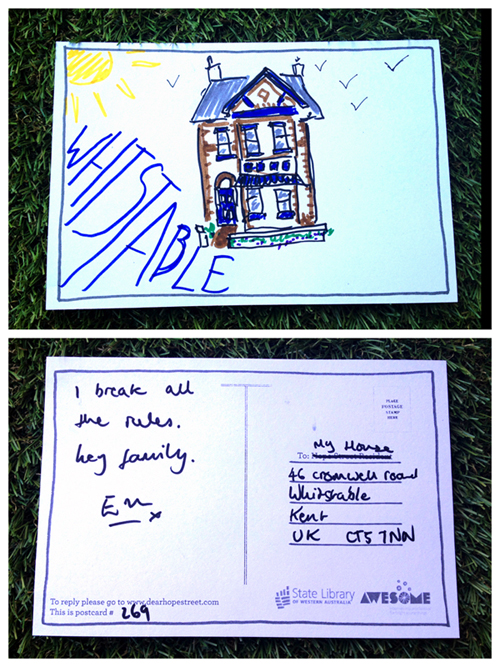 WHITSTABLE
I break all
the rules.
hey family.
Em x
PLACE
POSTAGE
STAMP
HERE
My House
To: Hope Street Resident
46 cromwell road
Whitstable
Kent
UK CT5 7NN
To reply please go to www.dearhopestreet.com
This is postcard # 269
State Library
OF WESTERN AUSTRALIA
AWESOME